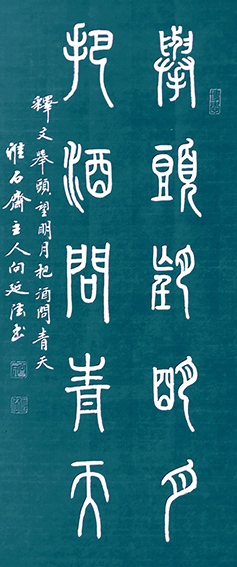 舉頭望明月
把酒問青天
釋文舉頭望明月把酒問青天
雅石齋主人向延法書